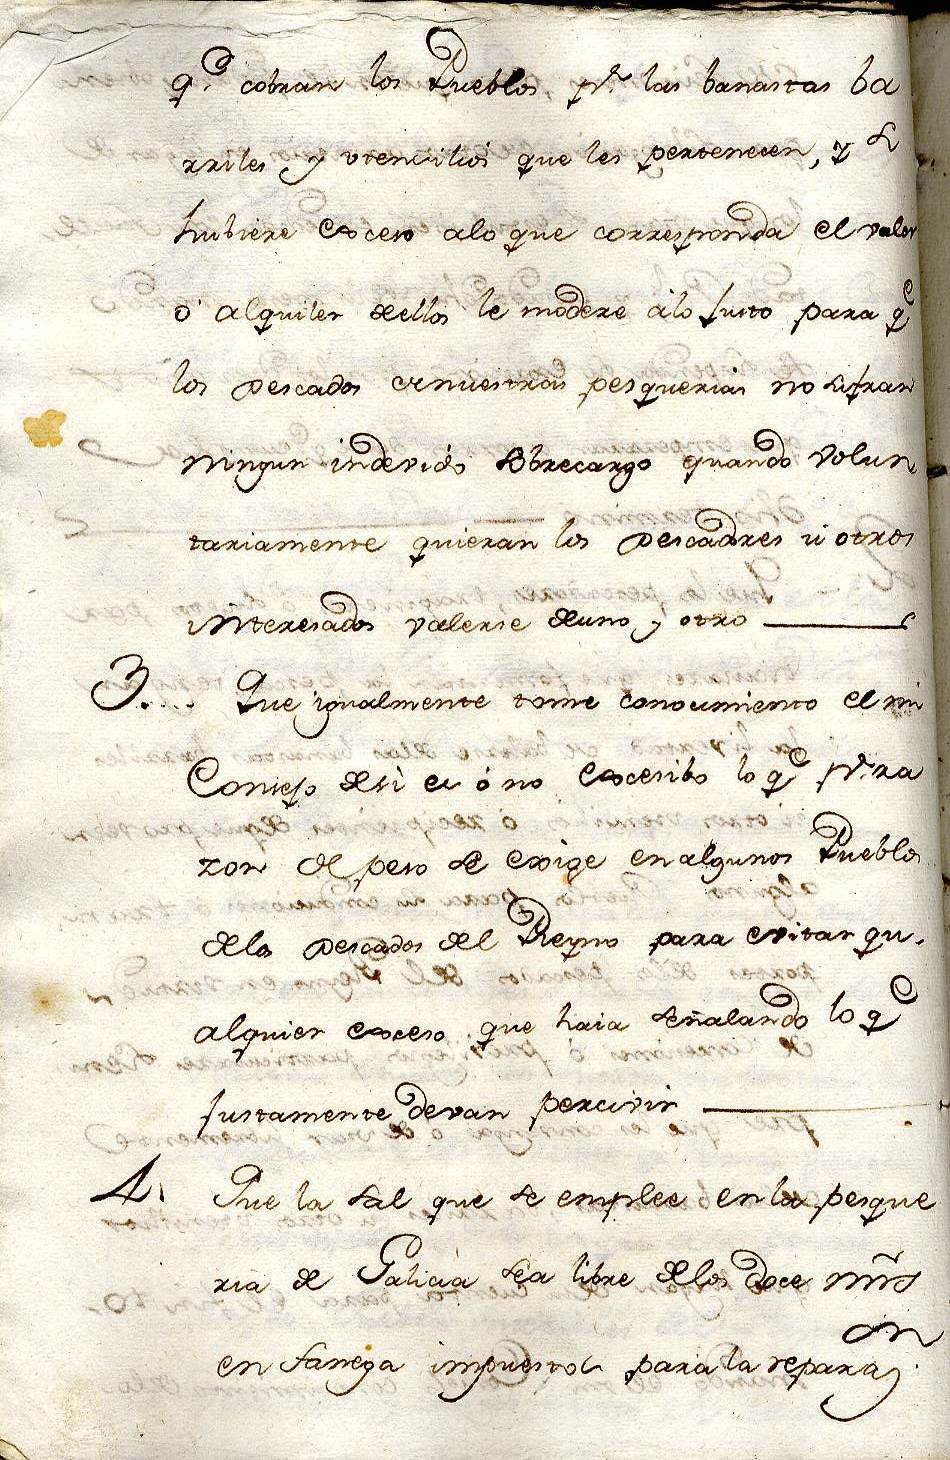 q.e cobran los Pueblos pr. las banastas ba
rriles y vtencilios que les pertenecen, y si
hubiere exceso alo que corresponda el valor
ò alquiler dellos le modere àlo justo para q.e
los pescados denuestras pesquerias no sufran
ningun indevido sobrecargo quando volun
tariamente quieran los pescadores ù otros
interesados valerse deuno y otro
3.... Que igualmente tome conocimiento el mi
Consejo desì es ò no excesibo lo q.e pr. ra
zon de peso se exige en algunos Pueblos
delos pescados del Reyno para evitar qu.
alquier exceso que haia señalando lo q.e
justamente devan percivir
4. Que la sal que se emplee en la pesque
ria de Galicia sea libre delos doce mrs
en fanega impuestos para la reparaon.